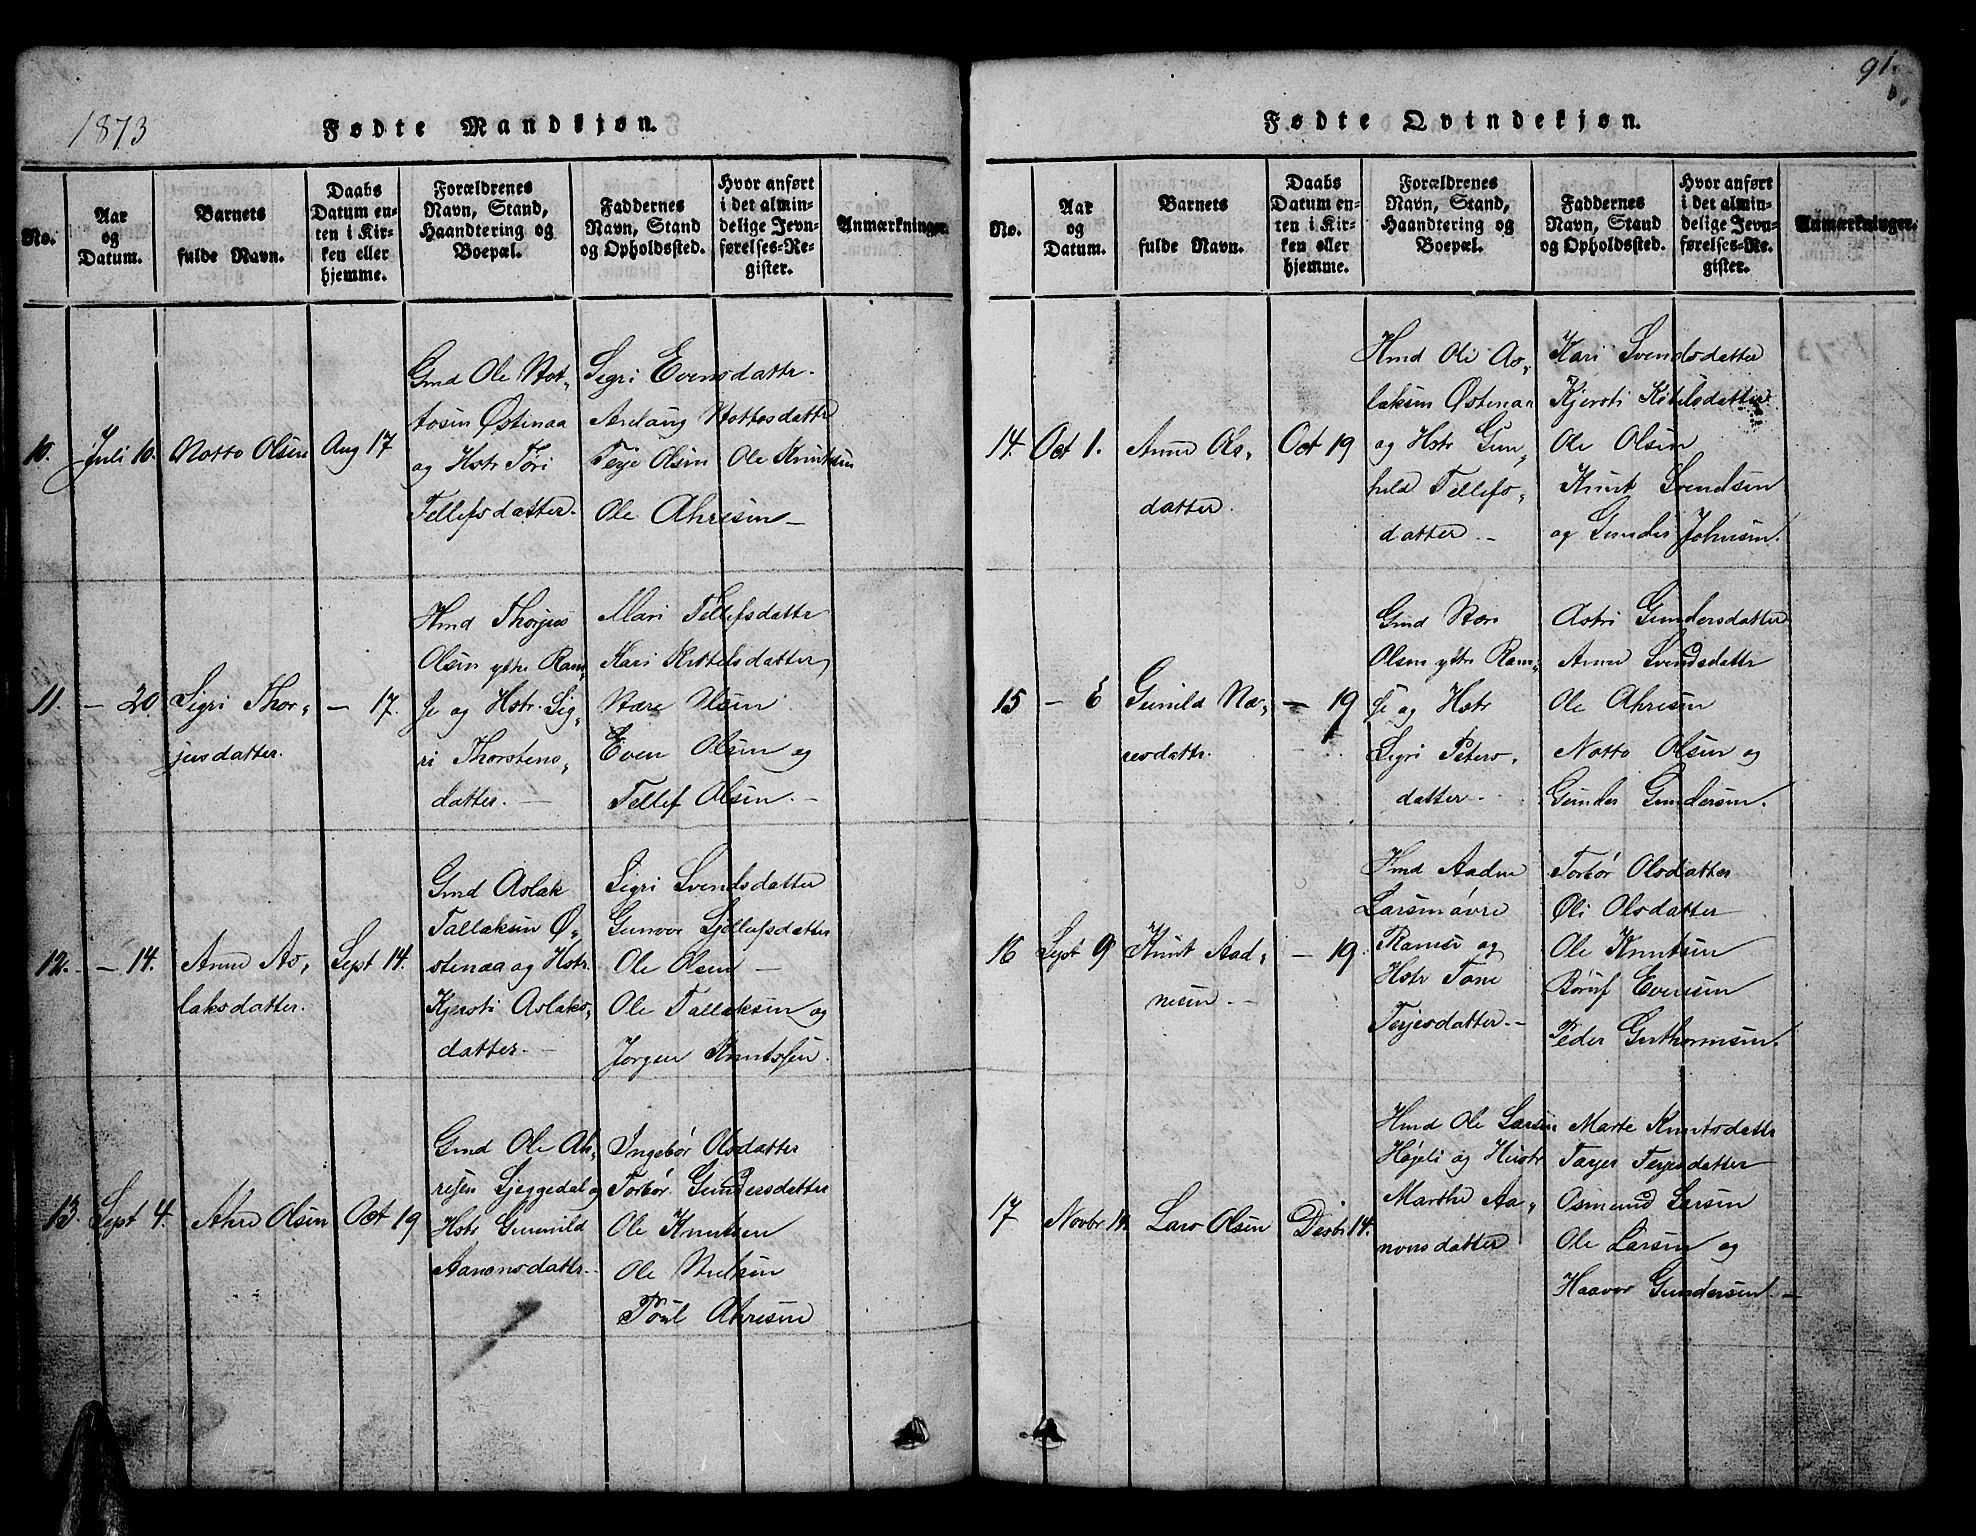 1873
Fødte Mandkjøn.
No.
Aar
og
Datum.
Barnets
fulde Navn.
Daabs
Datum en-
ten i Kir-
ken eller
hjemme.
Forældrenes
Navn, Stand,
Haandtering og
Boepæl.
Faddernes
Navn, Stand
og Opholdssted.
Hvor anført
i det almin-
delige Jevn-
førelses-Re-
gister.
Anmærkninger.
10.
Juli 10.
Notto Olsen
Aug 17
Gmd Ole Not-
tosen Østenaa
og Hstr Tori
Tellefsdatter.
Sigri Evensdattr.
Aslaug Nottosdatter
Terje Olsen Ole Knutsen
Ole Ahresen
11.
- 20.
Sigri Thor-
jusdatter.
- 17.
Hmd Thorjus
Olsen ytre Ram-
se og Hstr. Sig-
ri Thorstens-
datter.
Mari Tellefsdattr
Kari Kittelsdatter
Nære Olsen
Even Olsen og
Tellef Olsen.
12.
- 14.
Anne As-
laksdatter.
Sept 14.
Gmd Aslak
Tallaksen Ø-
stenaa og Hstr.
Kjersti Aslaks-
datter.
Sigri Svendsdatter
Gunvor Sjellefsdatter
Ole Olsen
Ole Tallaksen og
Jørgen Knutssen.
13.
Sept 4.
Ahre Olsen
Oct 19
Gmd Ole Ah-
resen Sjeggedal og
Hstr Gunnild
Aanonsdattr.
Ingebør Olsdatter
Torbør Gundersdatter
Ole Knutsen
Ole
Poul Ahresen
91.
Fødte Qvindekjøn.
No.
Aar
og
Datum.
Barnets
fulde Navn.
Daabs
Datum en-
ten i Kir-
ken eller
hjemme.
Forældrenes
Navn, Stand,
Haandtering og
Boepæl.
Faddernes
Navn, Stand
og Opholdssted.
Hvor anført
i det almin-
delige Jevn-
førelses-Re-
gister.
Anmærkninger.
14.
Oct 1.
Anne Ols-
datter.
Oct 19
Hmd Ole As-
laksen Østenaa
og Hstr Gun-
hild Tellefs-
datter.
Kari Svendsdatter
Kjersti Kitilsdatter
Ole Olsen
Knut Svendsen
og Gunder Johnsen.
15
- 6
Gunild Næ-
resdattr.
- 19
Gmd Nære
Olsen ytre Ram-
se og Hstr
Sigri Peters-
datter.
Astri Gundersdatter
Anne Svendsdattr
Ole Ahresen
Notto Olsen og
Gunder Gundersen.
16
Sept 9
Knut Aad-
nesen.
- 19.
Hmd Aadne
Larsen øvre
Ramse og
Hstr Tone
Terjesdatter.
Torbør Olsdatter
Øli Olsdatter
Ole Knutsen
Evensen
Peder Guthormsen.
17
Novbr 10.
Lars Olsen
Desbr 14.
Hmd Ole Larsen
Høgeli og Hustr
Marthe Aa-
nonsdatter
Marte Knutsdattr
Tarjer Terjesdatter
Osmund Larsen
Ole Larsen og
Haavor Gundersen.